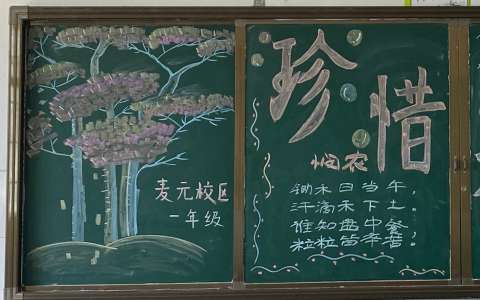 麦元校区
一年级
珍惜
悯农
锄禾日当午,
汗滴禾下土。
谁知盘中餐
粒粒皆辛苦。